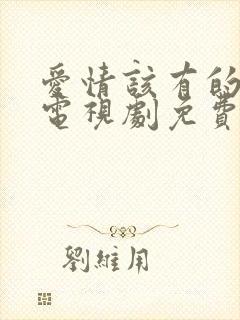 愛情該有的
電視劇免費
劉維用